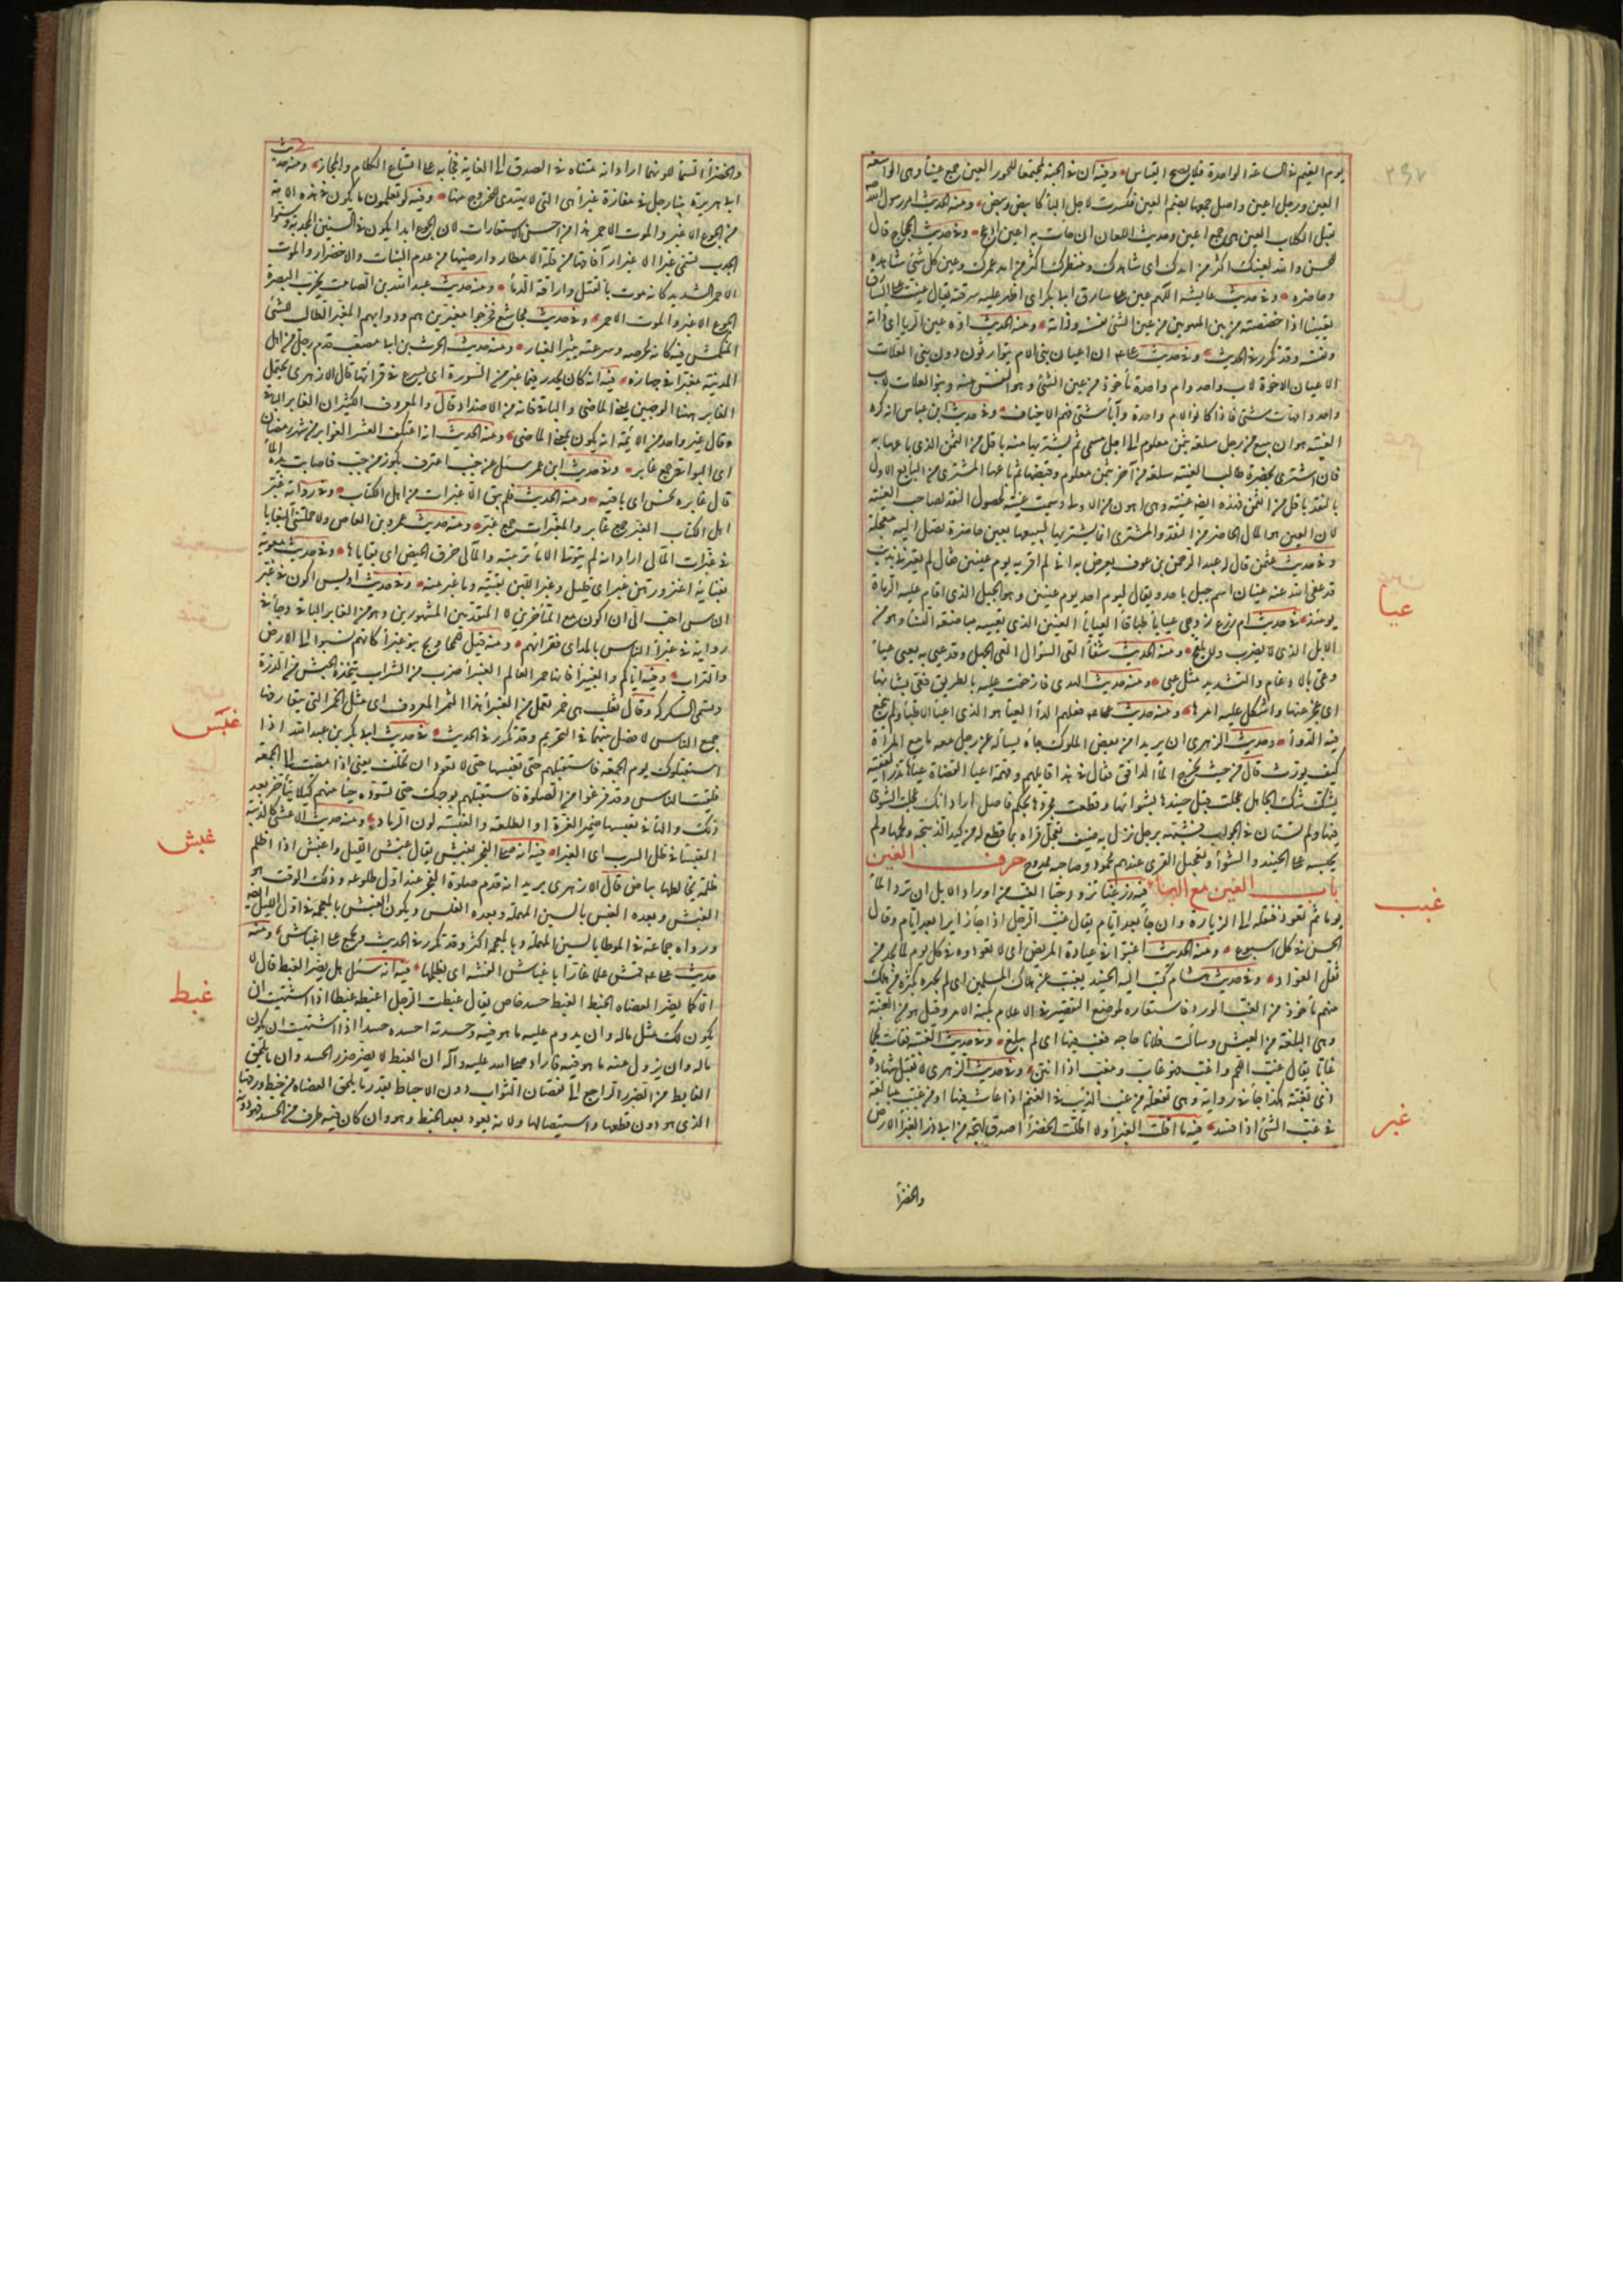 يوم الغيم في الساعة الواحدة فلا يصح القياس وفيه ان في الجنة لمجتمعا للحور العين جمع عيناء وهي الواسعة
العين ورجل اعين واصل جمعها بضم العين فكسرت لاجل الياء كابيض وبيض ومنه الحديث امر رسول الله
بقتل الكلاب العين هي جمع اعين وحديث اللعان ان جاءت به اعين ادعج وفي حديث الحجاج قال
للحسن والله لعينك اكثر من امدك اي شاهدك ومنظرك اكثر من امد عمرك وعين كل شئ شاهده
وحاضره وفي حديث عايشة اللهم عين على سارق ابي بكر اي اظهر عليه سرقته يقال عينت على السارق
تعيينا اذا خصصته من بين المتهمين من عين الشئ نفسه وذاته ومنه الحديث اوه عين الربا اي ذاته
ونفسه وقد تكرر في الحديث وفي حديث علي ان اعيان بني الام يتوارثون دون بني العلات
الاعيان الاخوة لاب واحد وام واحدة مأخوذ من عين الشئ وهو النفيس منه وبنو العلات لاب
واحد وامهات شتى فاذا كانوا لام واحدة وآباء شتى فهم الاخياف وفي حديث ابن عباس انه كره
العينة هو ان يبيع من رجل سلعة بثمن معلوم الى اجل مسمى ثم يشتريها منه باقل من الثمن الذي باعها به
فان اشترى بحضرة طالب العينة سلعة من آخر بثمن معلوم وقبضها ثم باعها المشتري من البايع الاول
بالنقد باقل من الثمن فهذه ايضا عينة وهي اهون من الاولى وسميت عينة لحصول النقد لصاحب العينة
لان العين هو المال الحاضر من النقد والمشتري انما يشتريها ليبيعها بعين حاضرة تصل اليه معجلة
وفي حديث عثمن قال له عبد الرحمن بن عوف يعرض به اني لم افر يوم عينين فقال لم تعيرني بذنب
قد عفى الله عنه عينان اسم جبل باحد ويقال ليوم احد يوم عينين وهو الجبل الذي اقام عليه الرماة
يومئذ في حديث ام زرع زوجي عياياء طباقاء العياياء العنين الذي تعييه مباضعة النساء وهو من
الابل الذي لا يضرب ولا يلقح ومنه الحديث شفاء العي السؤال العي الجهل وقد عيي به يعيى عياء
وعي بالادغام والتشديد مثل عيي ومنه حديث الهدي فازحفت عليه بالطريق فعي بشانها
اي عجز عنها واشكل عليه امرها ومنه حديث علي فعلهم الداء العياء هو الذي اعيا الاطباء ولم ينجع
فيه الدواء وحديث الزهري ان بريدا من بعض الملوك جاء يسأله عن رجل معه ما مع المراة
كيف يورث قال من حيث يخرج الماء الدافق فقال في هذا قايلهم ومهمة اعيا القضاة عياؤها تذر الفقيه
يشك شك الجاهل عجلت قبل حنيذها بشوائها وقطعت محردها بحكم فاصل اراد انك عجلت الفتوى
فيها ولم تستان في الجواب فشبهه برجل نزل به ضيف فعجل قراه بما قطع له من كبد الذبيحة ولحمها ولم
يحبسه على الحنيذ والشواء وتعجيل القرى عندهم محمود وصاحبه ممدوح حرف الغين
باب الغين مع الباء فيه زر غبا تزدد حبا الغب من اوراد الابل ان ترد الماء
يوما ثم تعود فنقله الى الزيارة وان جاء بعد ايام يقال غب الرجل اذا جاء زايرا بعد ايام وقال
الحسن في كل اسبوع ومنه الحديث اغبوا في عيادة المريض اي لا تعودوه في كل يوم لما يجد من
ثقل العواد وفي حديث هشام كتب اليه الجنيد يغبب عن هلاك المسلمين اي لم يخبره بكثرة من هلك
منهم ماخوذ من الغب الورد فاستعاره لموضع التقصير في الاعلام بكنه الامر وقيل هو من الغبة
وهي البلغة من العيش وسألت فلانا حاجة فغبب فيها اي لم يبلغ وفي حديث الغيبة فقاءت لحما
غابا يقال غب اللحم واغب فهو غاب ومغب اذا انتن وفي حديث الزهري لا تقبل شهادة
ذي تغبة هكذا جاء في رواية وهي تفعلة من غبب الذئب في الغنم اذا عاث فيها او من غبب مبالغة
في غب الشئ اذا فسد فيه ما اقلت الغبراء ولا اظلت الخضراء اصدق لهجة من ابي ذر الغبراء الارض
والخضراء
عيا
غبب
غبر
والخضراء السماء للونهما اراد انه متناه في الصدق الى الغاية فجاء به على اتساع الكلام والمجاز ومنه حديث
ابي هريرة بينا رجل في مفازة غبراء هي التي لا يهتدى للخروج منها وفيه لو تعلمون ما يكون في هذه الامة
من الجوع الاغبر والموت الاحمر هذا من احسن الاستعارات لان الجوع ابدا يكون في السنين المجدبة وسنوا
الجدب تسمى غبرا لاغبرار آفاقها من قلة الامطار وارضيها من عدم النبات والاخضرار والموت
الاحمر الشديد كانه موت بالقتل واراقة الدماء ومنه حديث عبد الله بن الصامت يخرب البصرة
الجوع الاغبر والموت الاحمر وفي حديث مجاشع فخرجوا مغبرين هم ودوابهم المغبر الطالب للشئ
المنكمش فيه كانه لحرصه وسرعته يثير الغبار ومنه حديث الحرث بن ابي مصعب قدم رجل من اهل
المدينة مغبرا في جهازه فيه انه كان يحدر فيما غبر من السورة اي يسرع في قراءتها قال الازهري يحتمل
الغابر هنا الوجهين يعني الماضي والباقي فانه من الاضداد وقال والمعروف الكثير ان الغابر الباقي
وقال غير واحد من الايمة انه يكون بمعنى الماضي ومنه الحديث انه اعتكف العشر الغوابر من شهر رمضان
اي البواقي جمع غابر وفي حديث ابن عمر سئل عن جنب اغترف بكوز من حب فاصابت يده الماء
قال غابره نجس اي باقيه ومنه الحديث فلم يبق الا غبرات من اهل الكتاب وفي رواية غبر
اهل الكتاب الغبر جمع غابر والغبرات جمع غبر ومنه حديث عمرو بن العاص ولا حملتني البغايا
في غبرات المآلي اراد انه لم تتول الاماء تربيته والمآلي خرق الحيض اي في بقاياها وفي حديث معوية
بفنايه اعنز درهن غبر اي قليل وغبر اللبن بقيته وما غبر منه وفي حديث اويس اكون في غبر
الناس احب الي ان اكون مع المتأخرين لا المتقدمين المشهورين وهو من الغابر الباقي وجاء في
رواية في غبراء الناس بالمد اي فقرائهم ومنه قيل للمحاويج بنو غبراء كانهم نسبوا الى الارض
والتراب وفيه اياكم والغبيراء فانها خمر العالم الغبيراء ضرب من الشراب يتخذه الحبش من الذرة
وتسمى السكركة وقال ثعلب هي خمر تعمل من الغبيراء هذا الثمر المعروف اي مثل الخمر التي يتعارفها
جميع الناس لا فضل بينهما في التحريم وقد تكرر في الحديث في حديث ابي بكر بن عبد الله اذا
استقبلوك يوم الجمعة فاستقبلهم حتى تغبسها حتى لا تعود ان تخلف يعني اذا مضيت الى الجمعة
فلقيت الناس وقد فرغوا من الصلوة فاستقبلهم بوجهك حتى تسوده حياء منهم كيلا يتأخر بعد
ذلك والهاء في تغبسها ضمير الغرة او الطلعة والغبسة لون الرماد ومنه حديث الاعشى كالذئبة
الغبساء في ظل السرب اي الغبراء فيه انه صلى الفجر بغبش يقال غبش الليل واغبش اذا اظلم
ظلمة يخالطها بياض قال الازهري يريد انه قدم صلوة الفجر عند اول طلوعه وذلك الوقت هو
الغبش وبعده الغبس بالسين المهملة وبعده الغلس ويكون الغبش بالمعجمة في اول الليل ايضا
ورواه جماعة في الموطا بالسين المهملة وبالمعجمة اكثر وقد تكرر في الحديث ويجمع على اغباش ومنه
حديث علي قمش علما غارا باغباش الفتنة اي بظلمها فيه انه سئل هل يضر الغبط قال لا
الا كما يضر العضاه الخبط الغبط حسد خاص يقال غبطت الرجل اغبطه غبطا اذا اشتهيت ان
يكون لك مثل ماله وان يدوم عليه ما هو فيه وحسدته احسده حسدا اذا اشتهيت ان يكون
ماله وان يزول عنه ما هو فيه فاراد صلى الله عليه وآله ان الغبط لا يضر ضرر الحسد وان ما يلحق
الغابط من الضرر الراجع الى نقصان الثواب دون الاحباط بقدر ما يلحق العضاه من خبط ورقها
الذي هو دون قطعها واستيصالها ولانه يعود بعد الخبط وهو وان كان فيه طرف من الحسد فهو دونه
غبس
غبش
غبط